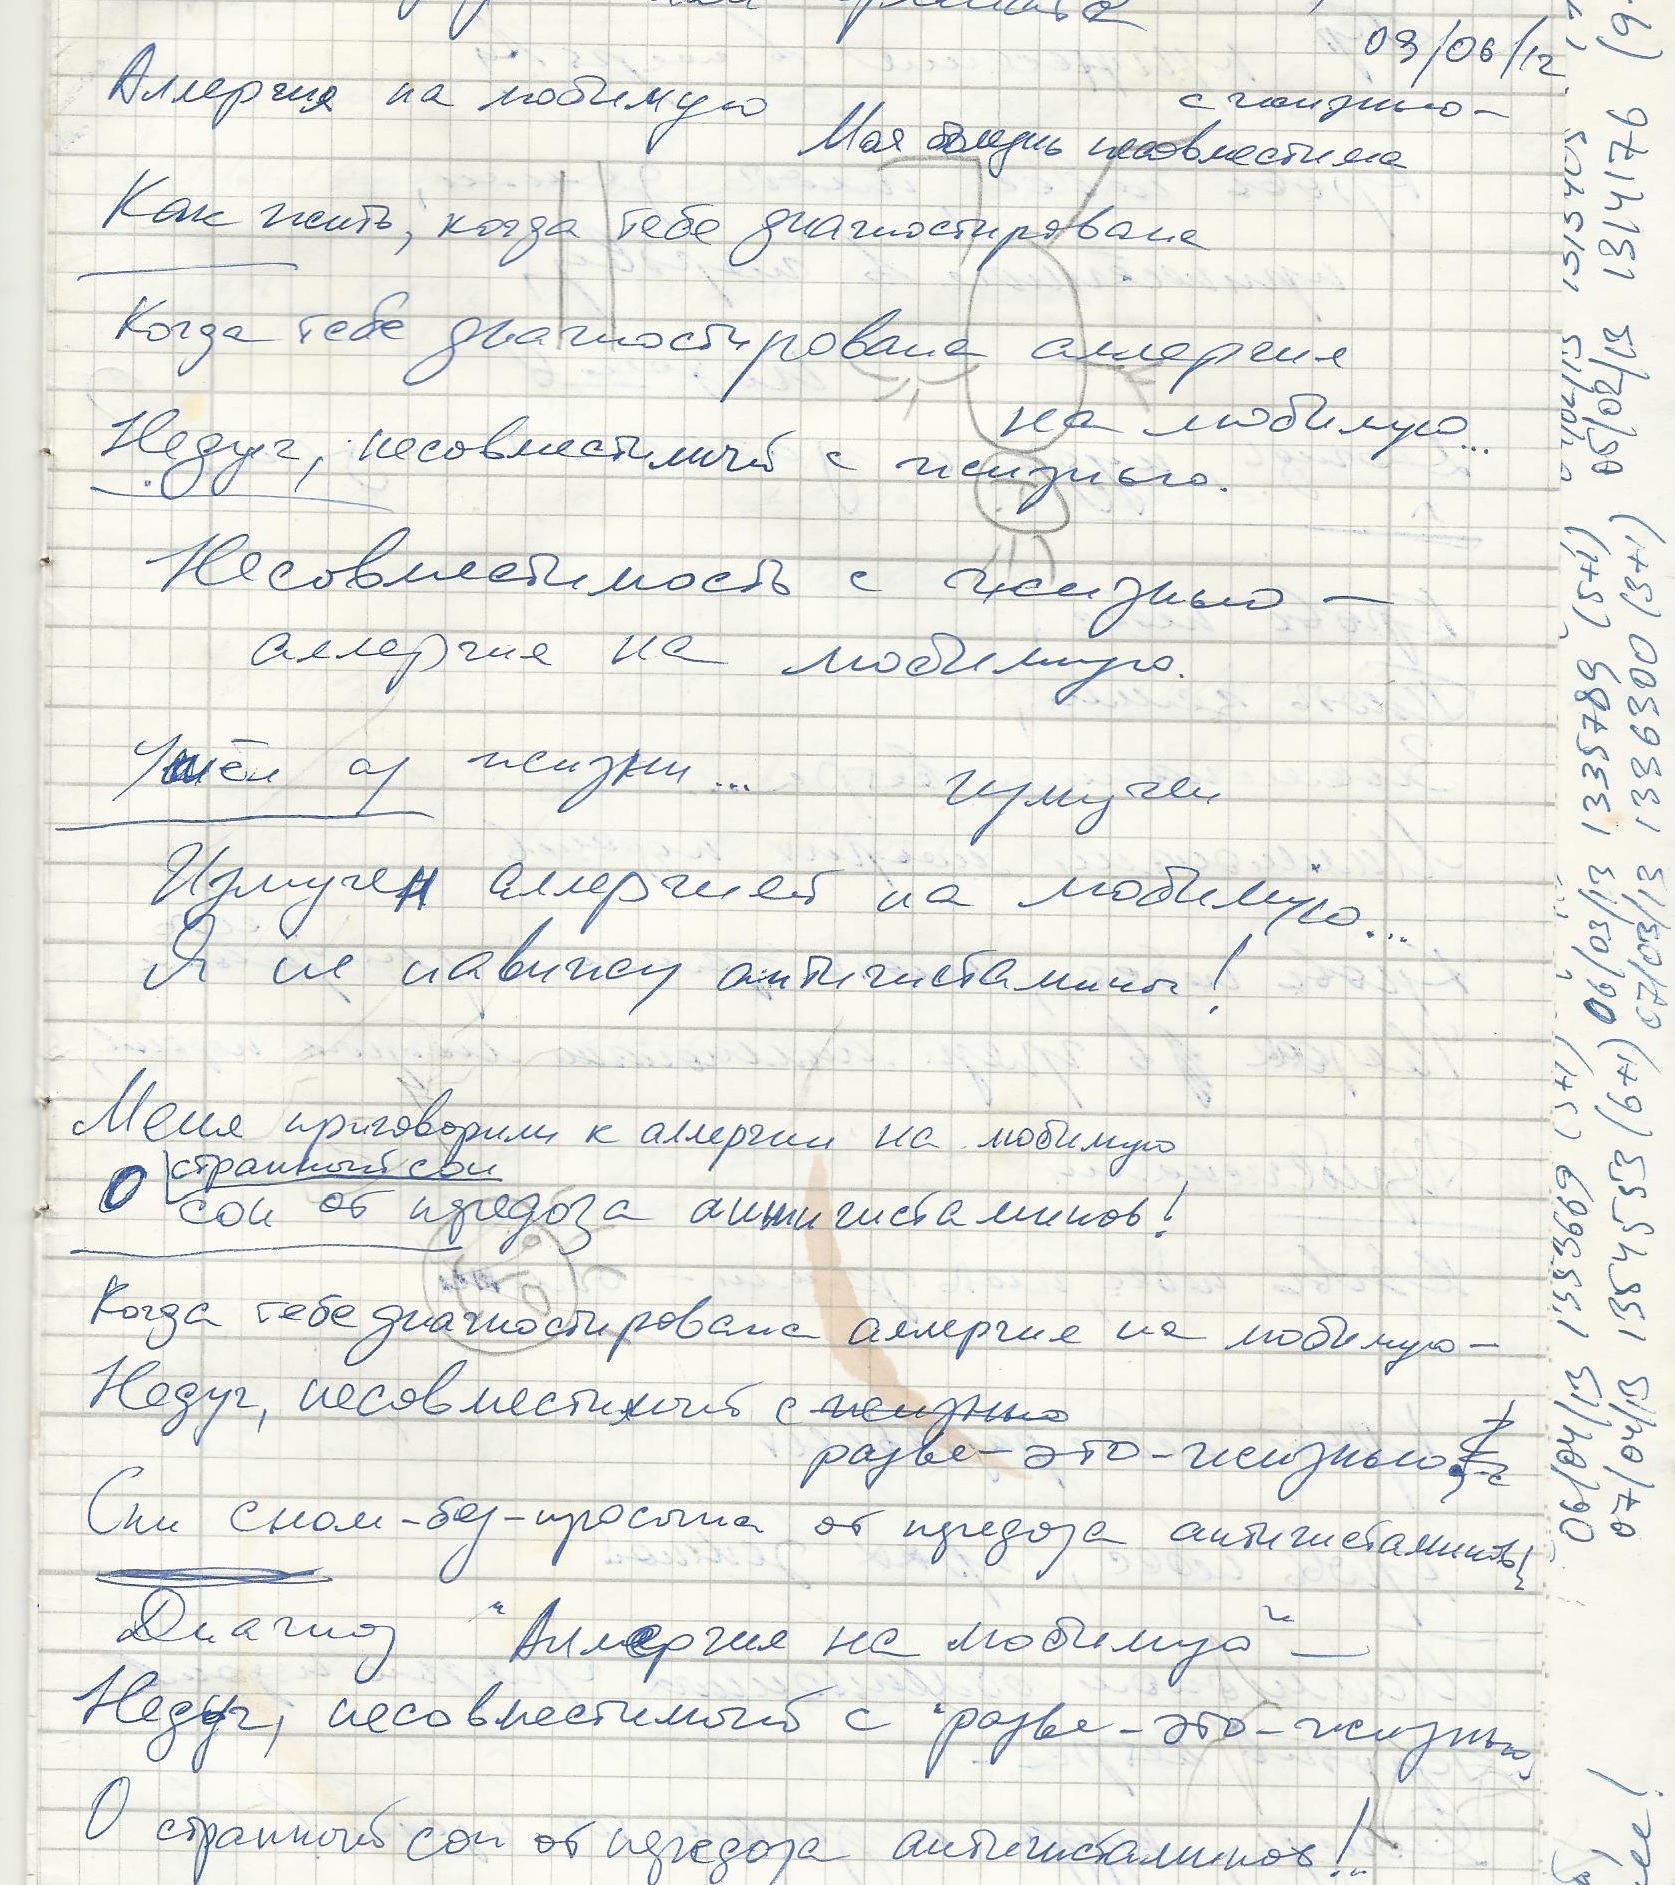 03/06/12
Аллергия на любимую
с жизнью –
Моя болезнь несовместима
Как жить, когда тебе диагностирована
Когда тебе диагностирована аллергия
на любимую...
Недуг, несовместимый с жизнью.
Несовместимость с жизнью –
аллергия на любимую.
Ушёл из жизни...
измучен
Измучен аллергией на любимую...
Я не навижу антигистамины!
Меня приговорили к аллергии на любимую
странный сон
О сон от передоза антигистаминов!
Когда тебе диагностирована аллергия на любимую –
Недуг, несовместимый с жизнью
разве-это-жизнью
Спи сном-без-просыпа от передоза антигистаминов
Диагноз "Аллергия на любимую" –
Недуг, несовместимый с "разве-это-жизнью"
О странный сон от передоза антигистаминов!..
06/04/13 1353609 (5+1) 06/03/13 1335789 (5+1)
07/04/13 1354553 (6+1) 07/03/13 1339300 (3+1)
05/02/13 1314176